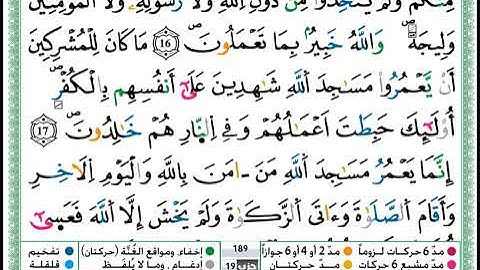 مِنكُمْ وَلَمْ يَتَّخِذُوا۟ مِن دُونِ ٱللَّهِ وَلَا رَسُولِهِۦ وَلَا ٱلْمُؤْمِنِينَ
وَلِيجَةً ۚ وَٱللَّهُ خَبِيرٌۢ بِمَا تَعْمَلُونَ 16 مَا كَانَ لِلْمُشْرِكِينَ
أَن يَعْمُرُوا۟ مَسَـٰجِدَ ٱللَّهِ شَـٰهِدِينَ عَلَىٰٓ أَنفُسِهِم بِٱلْكُفْرِ ۚ
أُو۟لَـٰٓئِكَ حَبِطَتْ أَعْمَـٰلُهُمْ وَفِى ٱلنَّارِ هُمْ خَـٰلِدُونَ 17
إِنَّمَا يَعْمُرُ مَسَـٰجِدَ ٱللَّهِ مَنْ ءَامَنَ بِٱللَّهِ وَٱلْيَوْمِ ٱلْـَٔاخِرِ
وَأَقَامَ ٱلصَّلَوٰةَ وَءَاتَى ٱلزَّكَوٰةَ وَلَمْ يَخْشَ إِلَّا ٱللَّهَ ۖ فَعَسَىٰٓ
مدّ 6 حركات لزوماً مدّ 2 أو 4 أو 6 جوازاً 189 إخفاء، ومواقع الغُنَّة (حركتان) تفخيم
مدّ مشبع 6 حركات مدّ حركتان إدغام، وما لا يُلفَظ قلقلة